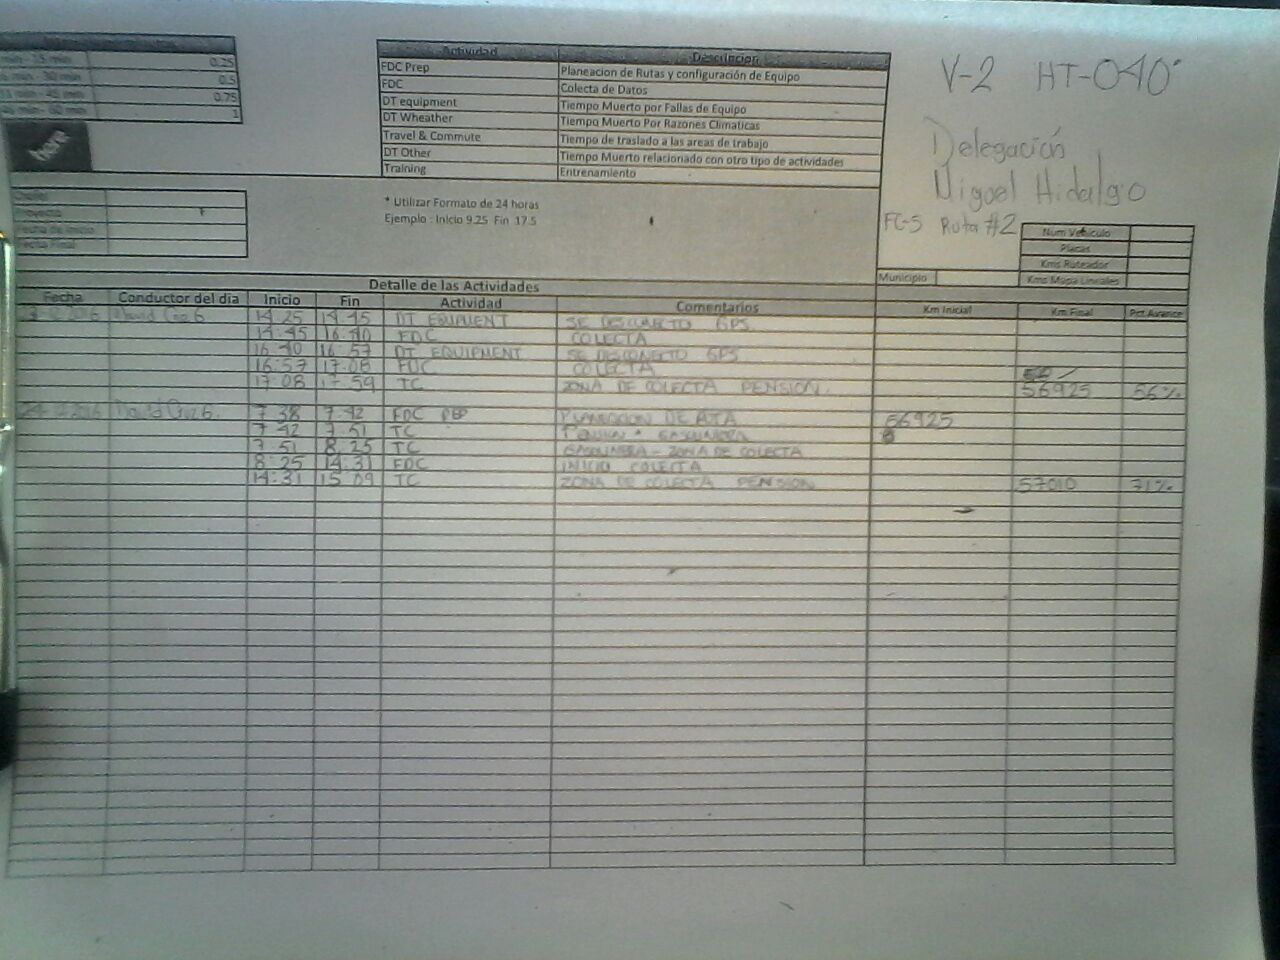 min - 15 min 0.25
min - 30 min 0.5
min - 45 min 0.75
min - 60 min 1
here
Actividad Descripcion
FDC Prep Planeacion de Rutas y configuración de Equipo
FDC Colecta de Datos
DT equipment Tiempo Muerto por Fallas de Equipo
DT Wheather Tiempo Muerto Por Razones Climaticas
Travel & Commute Tiempo de traslado a las areas de trabajo
DT Other Tiempo Muerto relacionado con otro tipo de actividades
Training Entrenamiento
V-2 HT-040
Delegación
Miguel Hidalgo
FC-5 Ruta #2
Proyecto
Fecha de Inicio
Fecha Final
* Utilizar Formato de 24 horas
Ejemplo : Inicio 9.25 Fin 17.5
Num Vehiculo
Placas
Kms Ruteador
Municipio Kms Mapa Lineales
Detalle de las Actividades
Fecha Conductor del dia Inicio Fin Actividad Comentarios Km Inicial Km Final Pct Avance
14:25 14:45 DT EQUIPMENT SE DESCONECTO GPS
14:45 16:40 FDC COLECTA
16:40 16:57 DT EQUIPMENT SE DESCONECTO GPS
16:57 17:08 FDC COLECTA
17:08 17:59 TC ZONA DE COLECTA PENSION. 56925 56%
David Cruz G. 7:38 7:42 FDC PEP PLANEACION DE RUTA 56925
7:42 7:51 TC GASOLINERA
7:51 8:25 TC GASOLINERA - ZONA DE COLECTA
8:25 14:31 FDC INICIO COLECTA
14:31 15:09 TC ZONA DE COLECTA PENSION 57010 71%